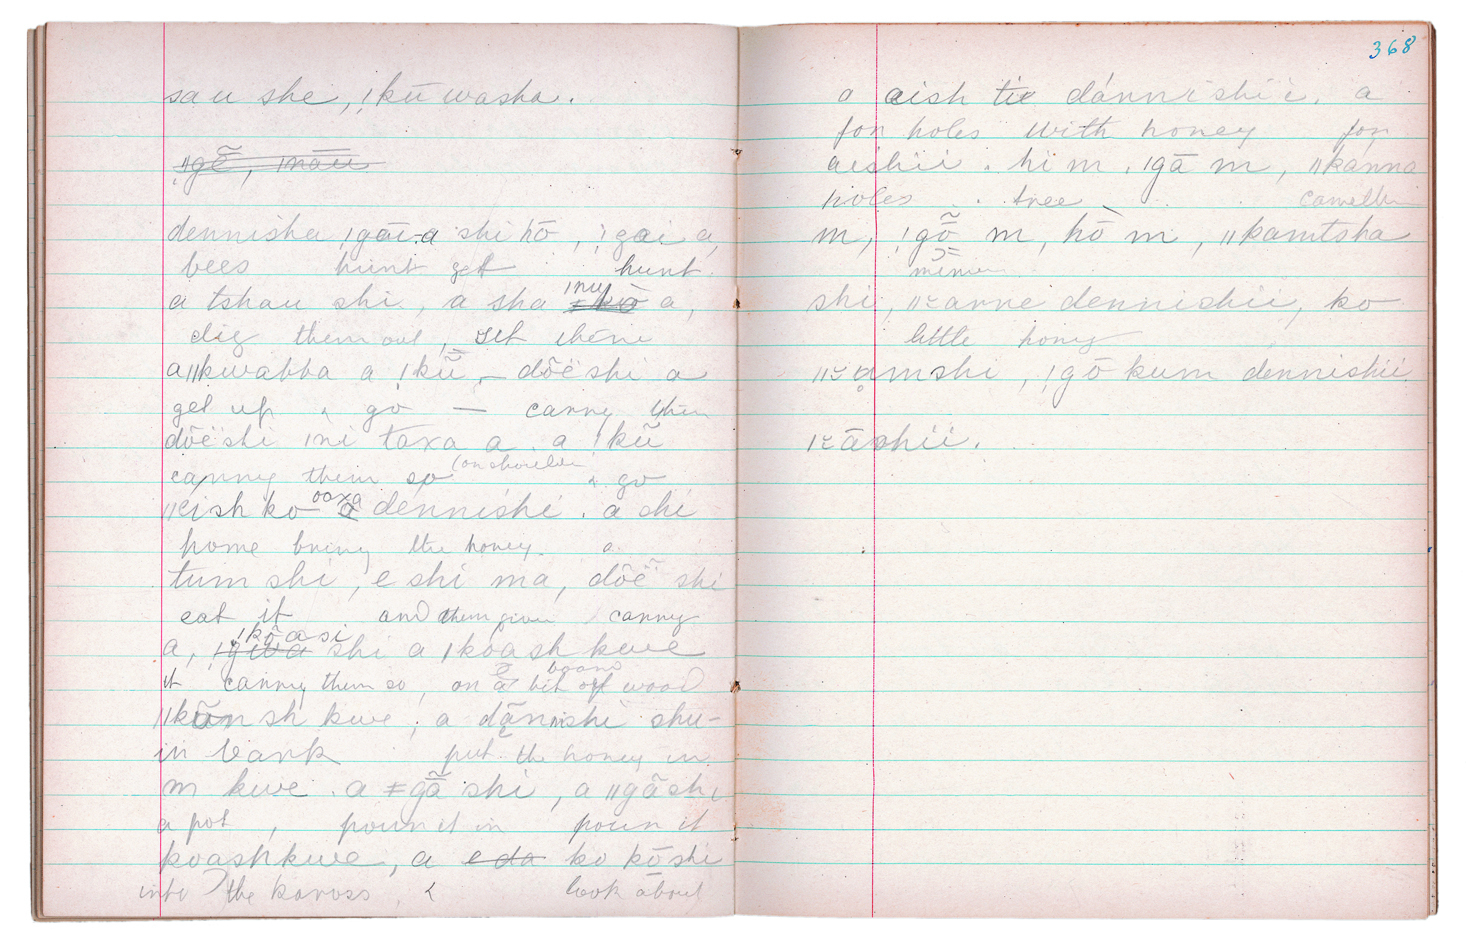 sau she, ǃkū washa.
ǁgẽ, ǀnāu
dennisha ǃgāi-a shi hō, ǃgai a,
bees hunt get hunt
a tshau shi, a sha ǀnu a,
dig them out, set
aǁkwabba a ǃkũ, – dôë shi a
get up & go — carry them
dôëshi ǀni taxa a. a ǃkũ
carry them so (on shoulder & go
ǁeish ko ooxa dennishi. a shi
home bring the honey. a
tum shi, e shi ma, dôë shi
eat it and them given carry
a, ǃkõasi ǃgwa shi a ǀkoash kwe
it carry them so, on a bit of board wood
ǁkũn sh kwe, a dānnishi shu-
in bark put the honey in
m kwe. a ǂgã shi, a ǁgãshi
a pot, pour it in pour it
koashkwe, a e da ko kōshi
into the kaross, & look about
368
o aish tie dánnishii. a
for holes with honey for
aishii. hi m. ǃgā m, ǁkánna
holes . tree camel
m, ǃgõ m, hò m, ǁkamtsha
shi, dennishii, ko
little honey
ǃgō kum dennishii